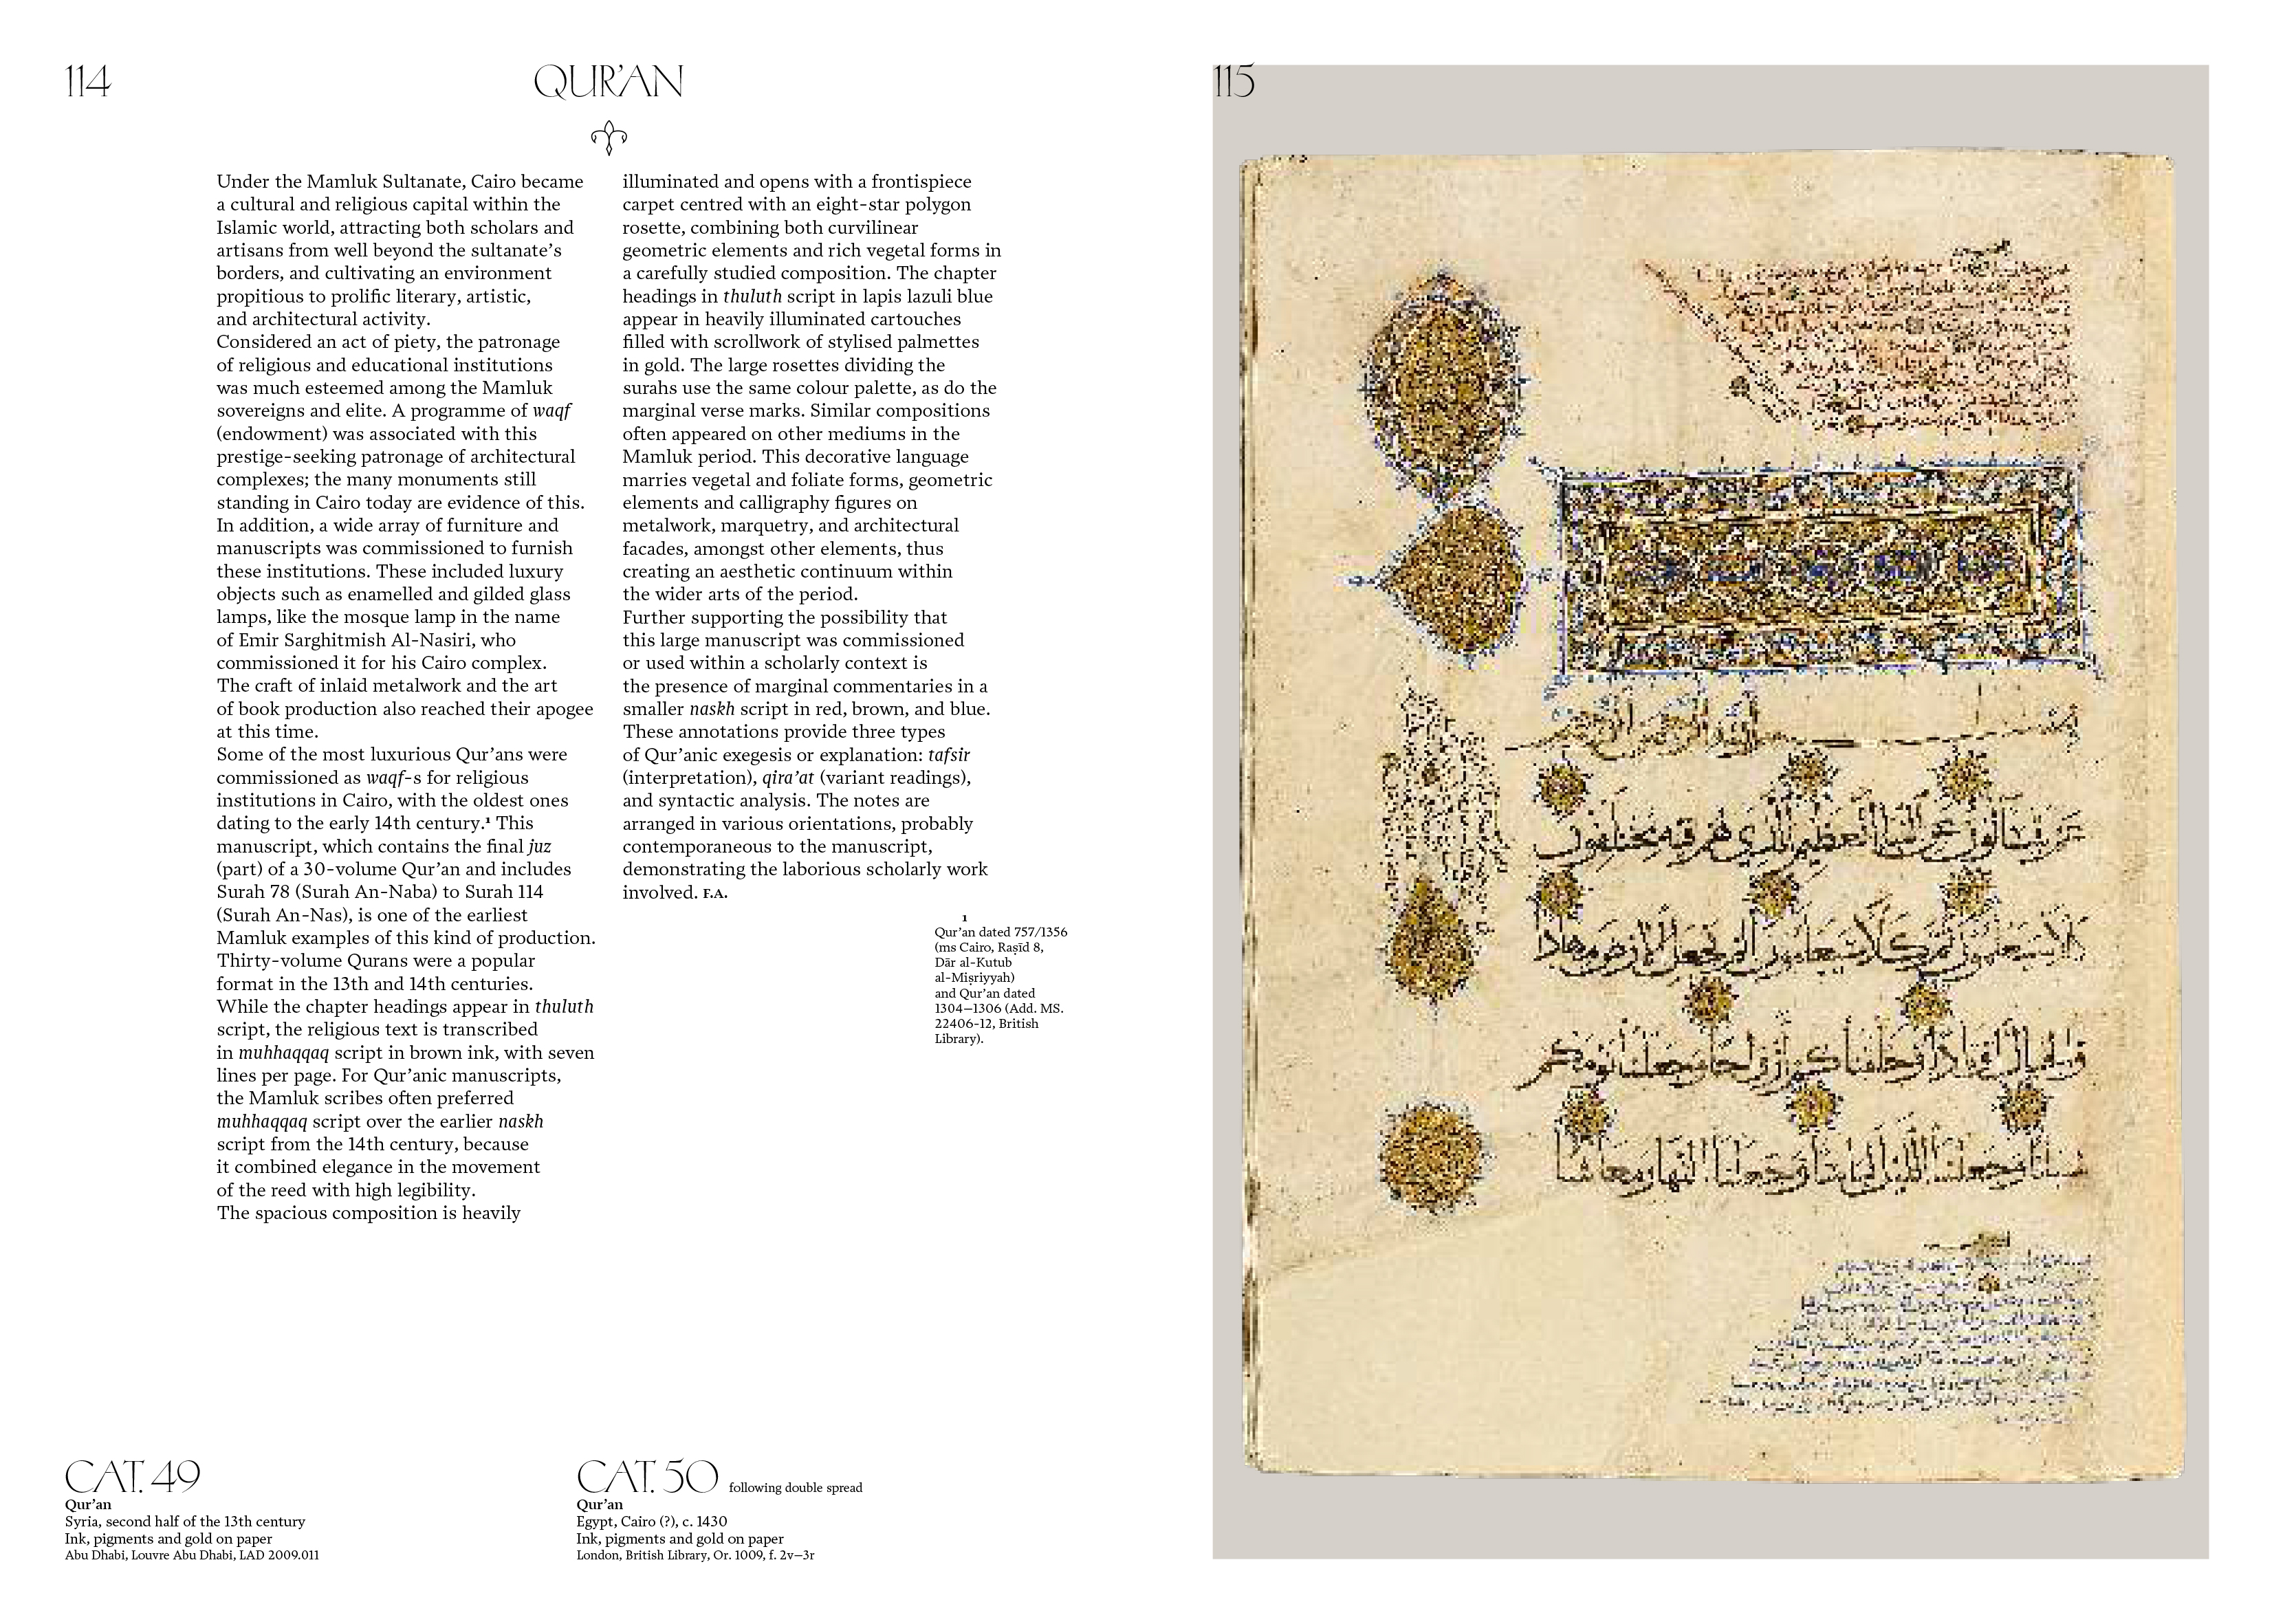 114
QUR'AN
Under the Mamluk Sultanate, Cairo became
a cultural and religious capital within the
Islamic world, attracting both scholars and
artisans from well beyond the sultanate's
borders, and cultivating an environment
propitious to prolific literary, artistic,
and architectural activity.
Considered an act of piety, the patronage
of religious and educational institutions
was much esteemed among the Mamluk
sovereigns and elite. A programme of waqf
(endowment) was associated with this
prestige-seeking patronage of architectural
complexes; the many monuments still
standing in Cairo today are evidence of this.
In addition, a wide array of furniture and
manuscripts was commissioned to furnish
these institutions. These included luxury
objects such as enamelled and gilded glass
lamps, like the mosque lamp in the name
of Emir Sarghitmish Al-Nasiri, who
commissioned it for his Cairo complex.
The craft of inlaid metalwork and the art
of book production also reached their apogee
at this time.
Some of the most luxurious Qur'ans were
commissioned as waqf-s for religious
institutions in Cairo, with the oldest ones
dating to the early 14th century.¹ This
manuscript, which contains the final juz
(part) of a 30-volume Qur'an and includes
Surah 78 (Surah An-Naba) to Surah 114
(Surah An-Nas), is one of the earliest
Mamluk examples of this kind of production.
Thirty-volume Qurans were a popular
format in the 13th and 14th centuries.
While the chapter headings appear in thuluth
script, the religious text is transcribed
in muhhaqqaq script in brown ink, with seven
lines per page. For Qur'anic manuscripts,
the Mamluk scribes often preferred
muhhaqqaq script over the earlier naskh
script from the 14th century, because
it combined elegance in the movement
of the reed with high legibility.
The spacious composition is heavily
illuminated and opens with a frontispiece
carpet centred with an eight-star polygon
rosette, combining both curvilinear
geometric elements and rich vegetal forms in
a carefully studied composition. The chapter
headings in thuluth script in lapis lazuli blue
appear in heavily illuminated cartouches
filled with scrollwork of stylised palmettes
in gold. The large rosettes dividing the
surahs use the same colour palette, as do the
marginal verse marks. Similar compositions
often appeared on other mediums in the
Mamluk period. This decorative language
marries vegetal and foliate forms, geometric
elements and calligraphy figures on
metalwork, marquetry, and architectural
facades, amongst other elements, thus
creating an aesthetic continuum within
the wider arts of the period.
Further supporting the possibility that
this large manuscript was commissioned
or used within a scholarly context is
the presence of marginal commentaries in a
smaller naskh script in red, brown, and blue.
These annotations provide three types
of Qur'anic exegesis or explanation: tafsir
(interpretation), qira'at (variant readings),
and syntactic analysis. The notes are
arranged in various orientations, probably
contemporaneous to the manuscript,
demonstrating the laborious scholarly work
involved. F.A.
1
Qur'an dated 757/1356
(ms Cairo, Raṣīd 8,
Dār al-Kutub
al-Miṣriyyah)
and Qur'an dated
1304–1306 (Add. MS.
22406-12, British
Library).
CAT. 49
Qur'an
Syria, second half of the 13th century
Ink, pigments and gold on paper
Abu Dhabi, Louvre Abu Dhabi, LAD 2009.011
CAT. 50 following double spread
Qur'an
Egypt, Cairo (?), c. 1430
Ink, pigments and gold on paper
London, British Library, Or. 1009, f. 2v–3r
115
بسم الله الرحمن الرحيم
عم يتساءلون عن النبإ العظيم الذي هم فيه مختلفون
كلا سيعلمون ثم كلا سيعلمون ألم نجعل الأرض مهادا
والجبال أوتادا وخلقناكم أزواجا وجعلنا نومكم
سباتا وجعلنا الليل لباسا وجعلنا النهار معاشا